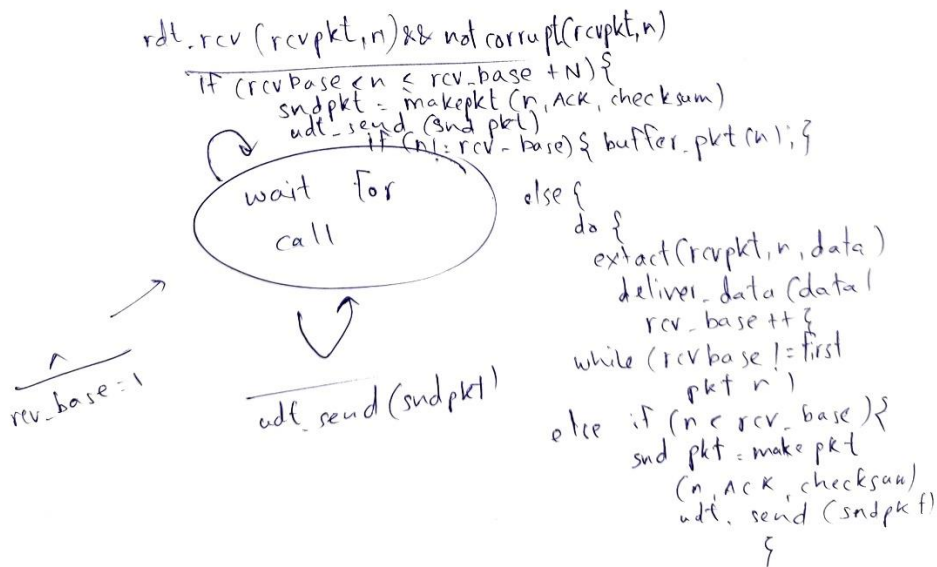 rdt.rcv (rcvpkt,n)&& not corrupt(rcvpkt,n)
if (rcvbase < n ≤ rcv_base +N){
sndpkt = makepkt (n, ACK, checksum)
udt_send (snd pkt)
if (n!= rcv-base) { buffer_pkt (n); {
wait for
call
else {
do {
extact(rcvpkt, n, data)
deliver_data (data(
rcv_base ++ {
while (rcvbase != first
pkt n )
else if (n < rcv_base){
snd pkt = make pkt
(n, ACK, checksum)
udt. send (sndpkt)
{
^
rcv_base = 1
udt_send (sndpkt)